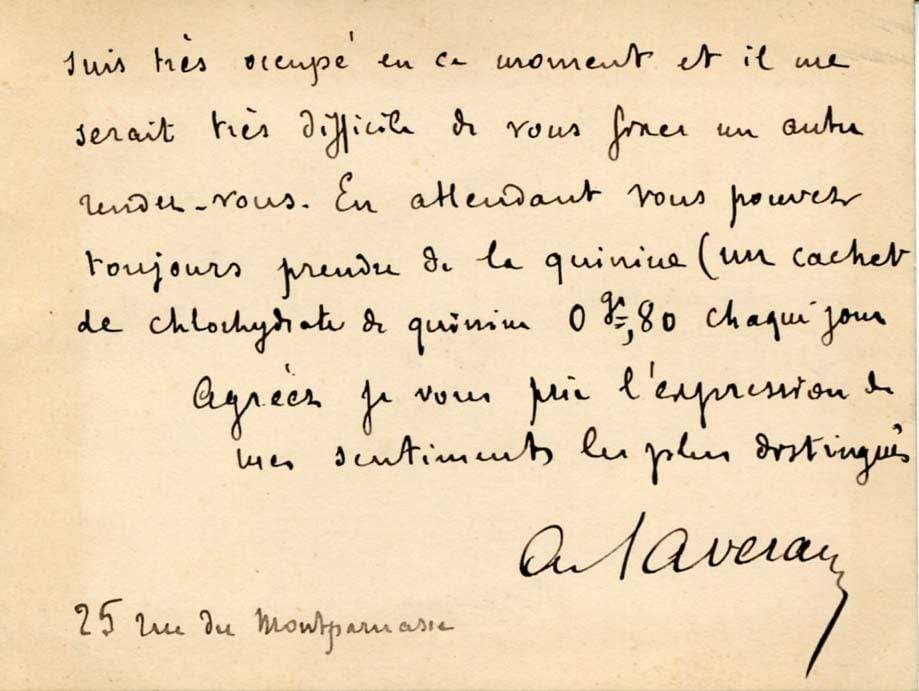 suis très occupé en ce moment et il me
serait très difficile de vous fixer un autre
rendez-vous. En attendant vous pouvez
toujours prendre de la quinine (un cachet
de chlorhydrate de quinine 0 gr,80 chaque jour
Agréez je vous prie l'expression de
mes sentiments les plus distingués
A. Laveran
25 rue du Montparnasse